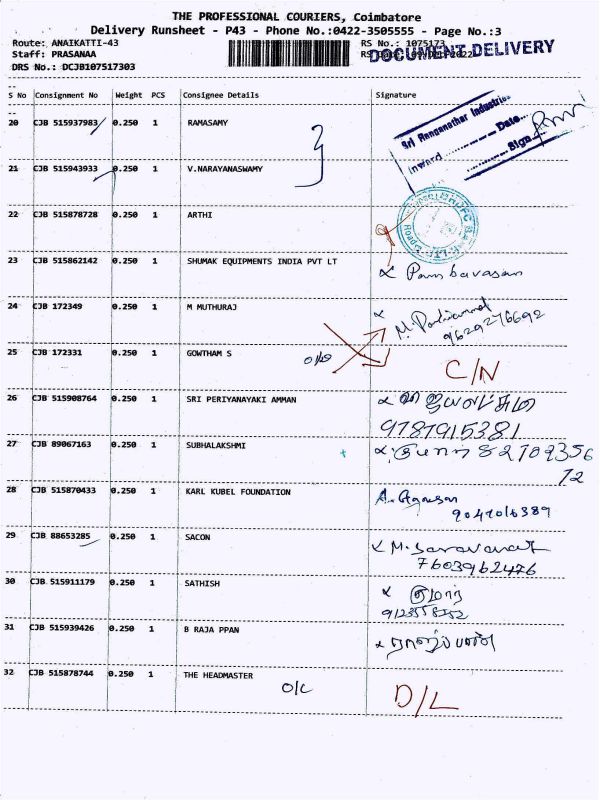 THE PROFESSIONAL COURIERS, Coimbatore
Delivery Runsheet - P43 - Phone No.:0422-3505555 - Page No.:3
Route: ANAIKATTI-43
RS No.: 1075173
Staff: PRASANAA
DOCUMENT DELIVERY
DRS No.: DCJB107517303
S No Consignment No Weight PCS Consignee Details Signature
Sri Ranganathar Industries
Inward Date
Sign
20 CJB 515937983 0.250 1 RAMASAMY
21 CJB 515943933 0.250 1 V.NARAYANASWAMY
22 CJB 515878728 0.250 1 ARTHI
23 CJB 515862142 0.250 1 SHUMAK EQUIPMENTS INDIA PVT LT
24 CJB 172349 0.250 1 M MUTHURAJ
9629276692
25 CJB 172331 0.250 1 GOWTHAM S C/N
26 CJB 515908764 0.250 1 SRI PERIYANAYAKI AMMAN
9787915381
27 CJB 89067163 0.250 1 SUBHALAKSHMI
72
28 CJB 515870433 0.250 1 KARL KUBEL FOUNDATION
29 CJB 88653285 0.250 1 SACON
7603962476
30 CJB 515911179 0.250 1 SATHISH குமார்
31 CJB 515939426 0.250 1 B RAJA PPAN
32 CJB 515878744 0.250 1 THE HEADMASTER O/C D/L